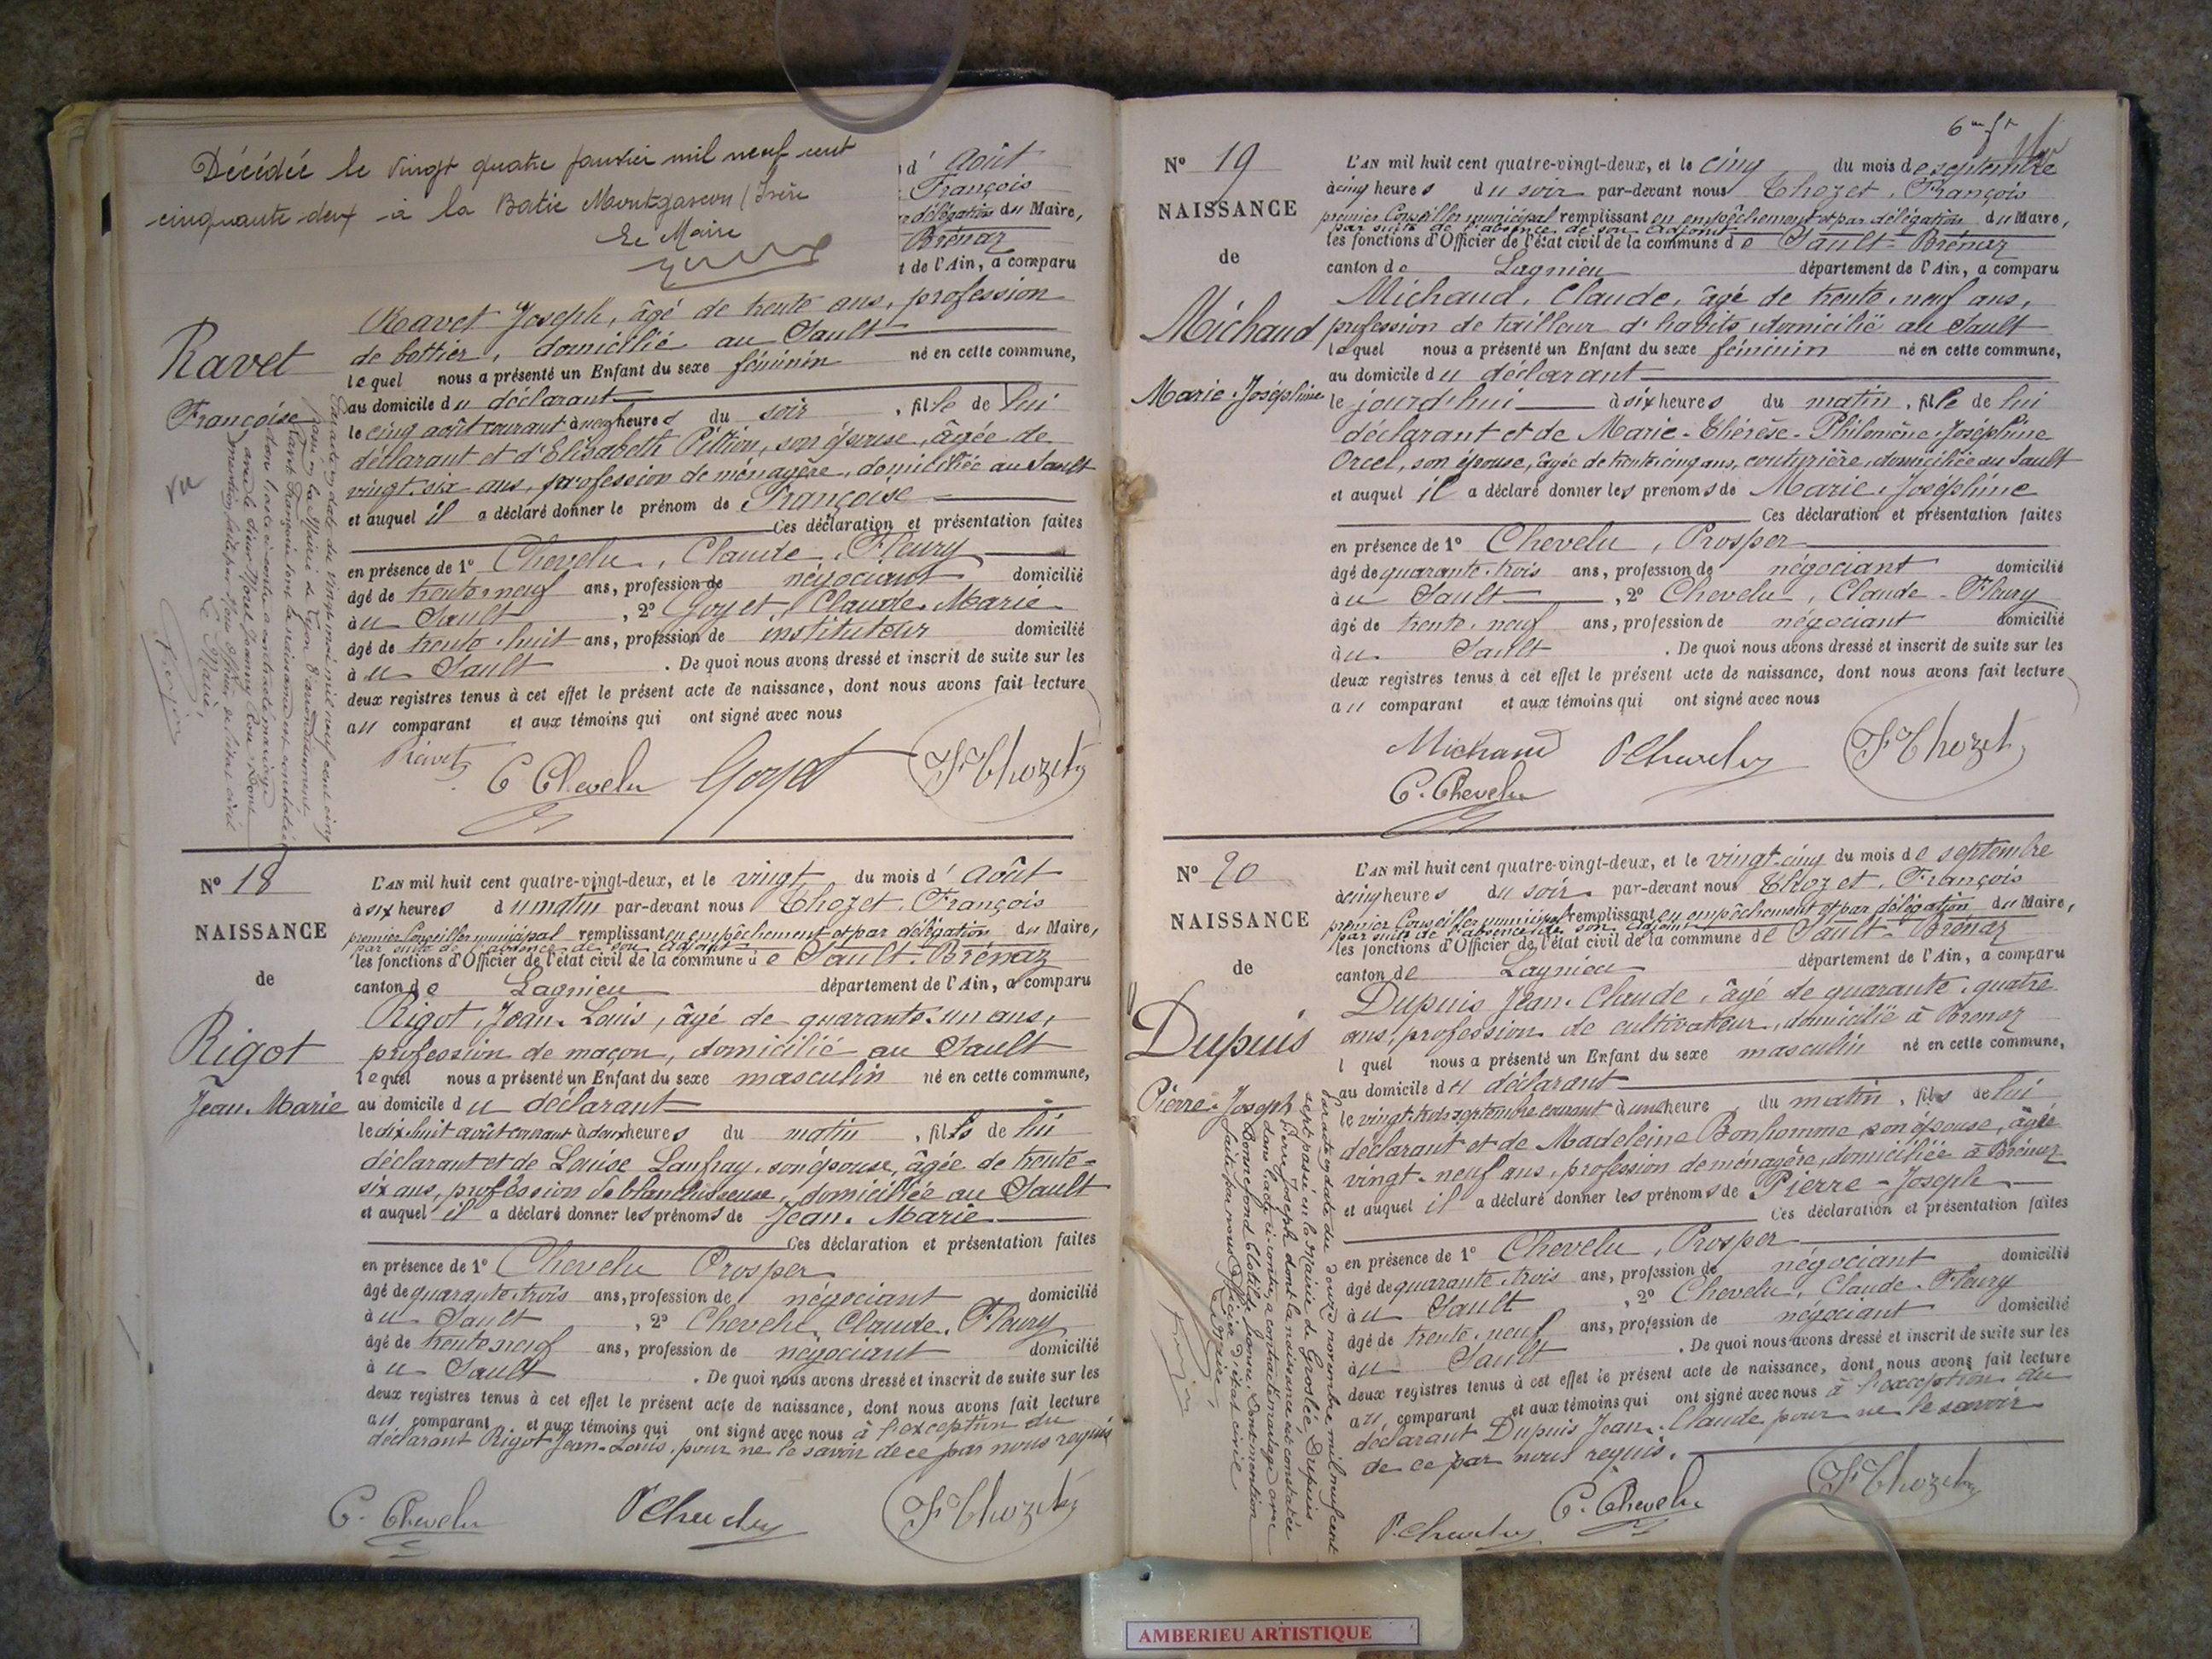 Décédée le vingt quatre janvier mil neuf cent
cinquante deux à la Batie Montgascon (Isère
Le Maire
d' Août
François
délégation du Maire,
Brénaz
t de l'Ain, a comparu
Ravet
Françoise
vu
Ravet Joseph, âgé de trente ans, profession
de bottier, domicilié au Sault
lequel nous a présenté un Enfant du sexe féminin né en cette commune,
au domicile du déclarant
le cinq août courant à neuf heures du soir, fille de lui
déclarant et d'Elisabeth Pittion, son épouse, âgée de
vingt-six ans, profession de ménagère, domiciliée au Sault
et auquel il a déclaré donner le prénom de Françoise
Ces déclaration et présentation faites
en présence de 1° Chevelu, Claude-Fleury
âgé de trente-neuf ans, profession de négociant domicilié
au Sault, 2° Goyet, Claude-Marie
âgé de trente-huit ans, profession de instituteur domicilié
au Sault. De quoi nous avons dressé et inscrit de suite sur les
deux registres tenus à cet effet le présent acte de naissance, dont nous avons fait lecture
au comparant et aux témoins qui ont signé avec nous
Ravet C. Chevelu Goyet F Thozet
Par acte en date du vingt moi mil neuf cent cinq
passé en la Mairie de Lyon arrondissement
Ravet Françoise dont la naissance est constatée
dans l'acte ci-contre a contracté mariage
avec le sieur
mention faite par Nous Officier de l'état civil
Le Maire,
N° 18
NAISSANCE
de
Rigot
Jean-Marie
L'AN mil huit cent quatre-vingt-deux, et le vingt du mois d' Août
à six heures du matin par-devant nous Thozet, François
premier Conseiller municipal remplissant en empêchement et par délégation du Maire,
par suite de l'absence de son Adjoint
les fonctions d'Officier de l'état civil de la commune de Sault-Brénaz
canton de Lagnieu département de l'Ain, a comparu
Rigot, Jean-Louis, âgé de quarante-un ans,
profession de maçon, domicilié au Sault
lequel nous a présenté un Enfant du sexe masculin né en cette commune,
au domicile du déclarant
le dix-huit août courant à deux heures du matin, fils de lui
déclarant et de Louise Laufray, son épouse, âgée de trente-
six ans, profession de blanchisseuse, domiciliée au Sault
et auquel il a déclaré donner les prénoms de Jean-Marie
Ces déclaration et présentation faites
en présence de 1° Chevelu Prosper
âgé de quarante-trois ans, profession de négociant domicilié
au Sault, 2° Chevelu, Claude-Fleury
âgé de trente-neuf ans, profession de négociant domicilié
au Sault. De quoi nous avons dressé et inscrit de suite sur les
deux registres tenus à cet effet le présent acte de naissance, dont nous avons fait lecture
au comparant et aux témoins qui ont signé avec nous à l'exception du
déclarant Rigot Jean-Louis, pour ne le savoir de ce par nous requis
C. Chevelu P Chevelu F Thozet
N° 19
NAISSANCE
de
Michaud
Marie-Joséphine
L'AN mil huit cent quatre-vingt-deux, et le cinq du mois de septembre
à cinq heures du soir par-devant nous Thozet, François
premier Conseiller municipal remplissant en empêchement et par délégation du Maire,
par suite de l'absence de son Adjoint
les fonctions d'Officier de l'état civil de la commune de Sault-Brénaz
canton de Lagnieu département de l'Ain, a comparu
Michaud, Claude, âgé de trente-neuf ans,
profession de tailleur d'habits, domicilié au Sault
lequel nous a présenté un Enfant du sexe féminin né en cette commune,
au domicile du déclarant
le jourd'hui à six heures du matin, fille de lui
déclarant et de Marie-Thérèse-Philomène-Joséphine
Orcel, son épouse, âgée de trente-cinq ans, couturière, domiciliée au Sault
et auquel il a déclaré donner les prénoms de Marie-Joséphine
Ces déclaration et présentation faites
en présence de 1° Chevelu, Prosper
âgé de quarante-trois ans, profession de négociant domicilié
au Sault, 2° Chevelu, Claude-Fleury
âgé de trente-neuf ans, profession de négociant domicilié
au Sault. De quoi nous avons dressé et inscrit de suite sur les
deux registres tenus à cet effet le présent acte de naissance, dont nous avons fait lecture
au comparant et aux témoins qui ont signé avec nous
Michaud P Chevelu F Thozet
C. Chevelu
N° 20
NAISSANCE
de
Dupuis
Pierre-Joseph
L'AN mil huit cent quatre-vingt-deux, et le vingt-cinq du mois de septembre
à cinq heures du soir par-devant nous Thozet, François
premier Conseiller municipal remplissant en empêchement et par délégation du Maire,
par suite de l'absence de son Adjoint
les fonctions d'Officier de l'état civil de la commune de Sault-Brénaz
canton de Lagnieu département de l'Ain, a comparu
Dupuis Jean-Claude, âgé de quarante-quatre
ans, profession de cultivateur, domicilié à Brénaz
l quel nous a présenté un Enfant du sexe masculin né en cette commune,
au domicile du déclarant
le vingt-trois septembre courant à une heure du matin, fils de lui
déclarant et de Madeleine Bonhomme, son épouse, âgée
vingt-neuf ans, profession de ménagère, domiciliée à Brénaz
et auquel il a déclaré donner les prénoms de Pierre-Joseph
Ces déclaration et présentation faites
en présence de 1° Chevelu, Prosper
âgé de quarante-trois ans, profession de négociant domicilié
au Sault, 2° Chevelu, Claude-Fleury
âgé de trente-neuf ans, profession de négociant domicilié
au Sault. De quoi nous avons dressé et inscrit de suite sur les
deux registres tenus à cet effet le présent acte de naissance, dont nous avons fait lecture
au comparant et aux témoins qui ont signé avec nous à l'exception du
déclarant Dupuis Jean-Claude pour ne le savoir
de ce par nous requis.
P. Chevelu C. Chevelu F Thozet
Par acte en date du douze novembre mil neuf cent
sept passé en la Mairie de Groslée, Dupuis
Pierre Joseph dont la naissance est constatée
dans l'acte ci-contre, a contracté mariage avec
Bonnefond Clotilde Dont mention
faite par nous Officier d'état civil
Le Maire,
AMBERIEU ARTISTIQUE